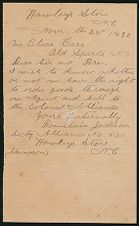 Hawley's Store
N.C
Nov the 25th 1890
Mr Elias Carr
Old Sparta N.C
Dear Sir and Bro.
I wish to know whether
or not we have the right
to order goods through
our Agent and sell to
the Colored Alliance
Yours Fraternally
Fountain Jackson
Secty Alliance No
Hawley's Store
Sampson N.C